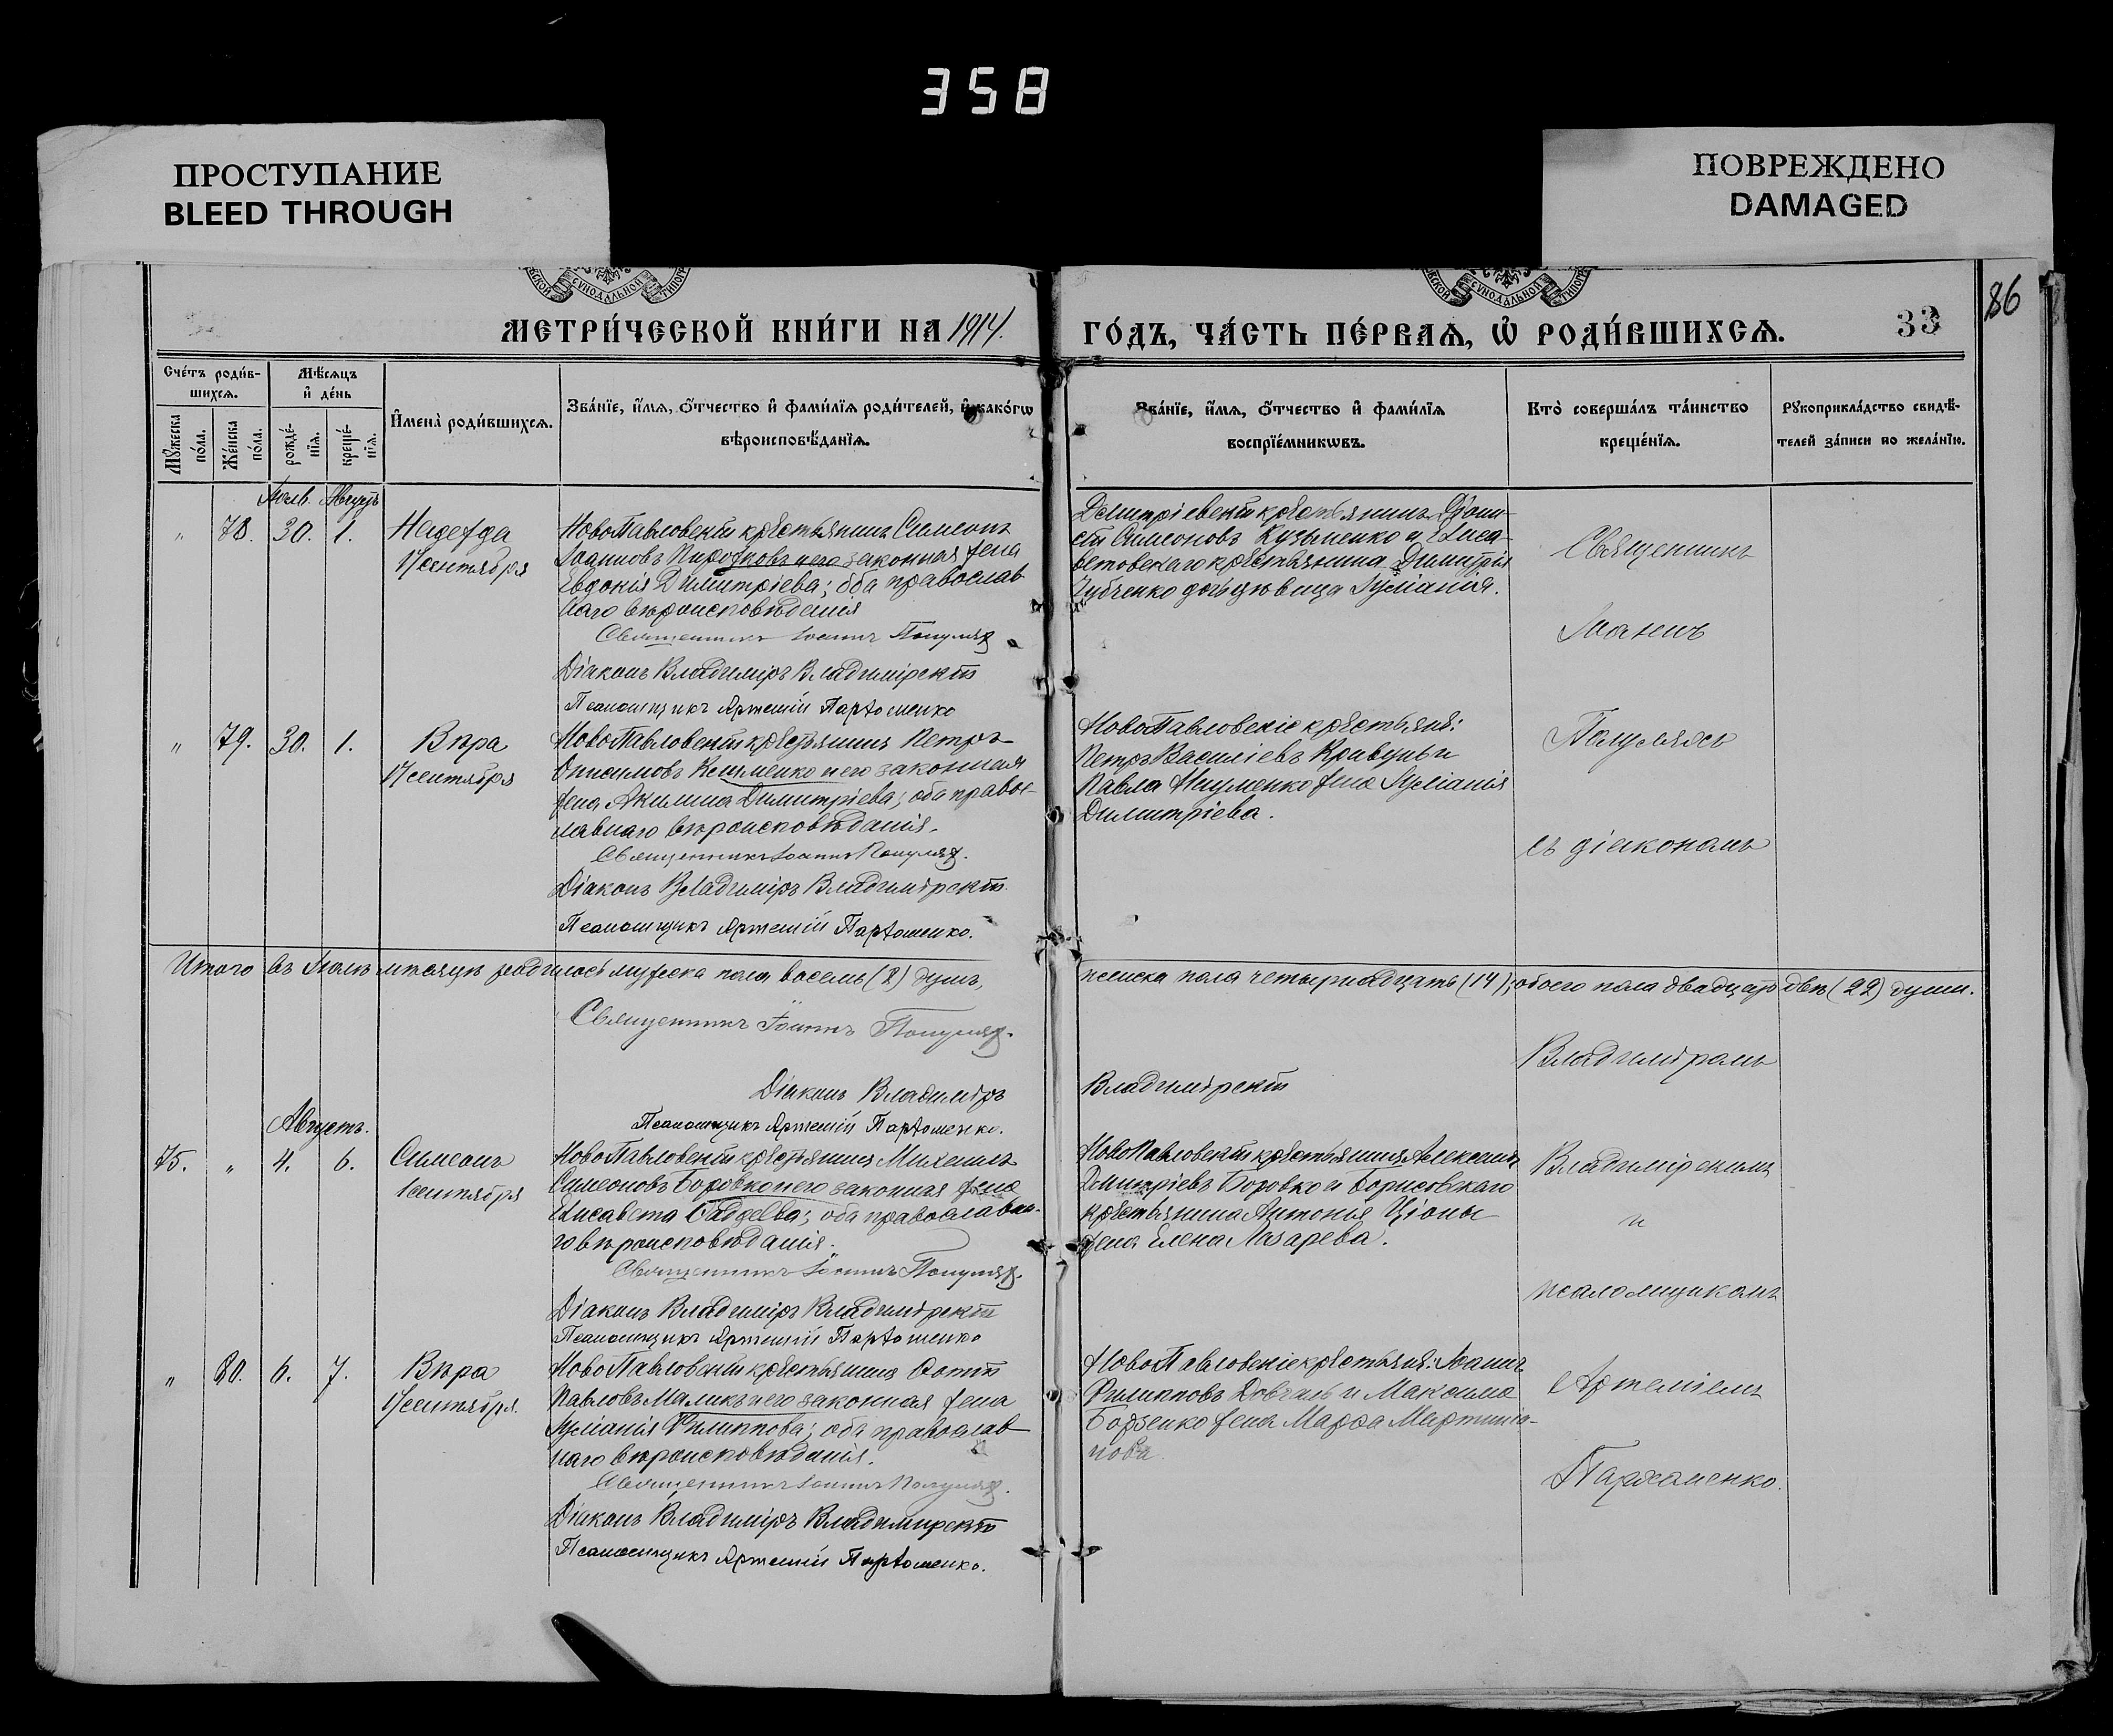 358
ПРОСТУПАНИЕ
BLEED THROUGH
ПОВРЕЖДЕНО
DAMAGED
МЕТРИ́ЧЕСКОЙ КНИ́ГИ НА 1914.
ГО́ДЪ, ЧА́СТЬ ПЕ́РВАЯ, Ѡ҆ РОДИ́ВШИХСЯ.
33
86
Сче́тъ роди́в-
шихся.
Мѣ́сяцъ
и҆ де́нь
Мꙋ́жеска по́ла.
Же́нска по́ла.
рожде́-
нїя.
креще́-
нїя.
И҆мена̀ роди́вшихся.
Зва́нїе, и҆́мя, ѻ҆́тчество и҆ фами́лїя роди́телей, и҆ како́гѡ
вѣроисповѣ́данїя.
Зва́нїе, и҆́мя, ѻ҆́тчество и҆ фами́лїя
воспрїе́мникѡвъ.
Кто̀ соверша́лъ та́инство
креще́нїя.
Рꙋкоприкла́дство свидѣ́-
телей за́писи по жела́нїю.
Іюль. Августъ
" 78. 30. 1.
Надежда
17 сентября
НовоПавловскій крестьянинъ Симеонъ
Іоанновъ Пирожковъ и его законная жена
Евдокія Димитріева; оба православ
наго вѣроисповѣданія
Священникъ Іоаннъ Полуляхъ
Діаконъ Владиміръ Владимірскій
Псаломщикъ Артемій Пархоменко
Димитріевскій крестьянинъ Діони-
сій Симеоновъ Кузьменко и Елиса-
ветовскаго крестьянина Димитрія
Зубченко дочь дѣвица Іуліанія.
Священникъ
Іоаннъ
" 79. 30. 1.
Вѣра
17 сентября
НовоПавловскій крестьянинъ Петръ
Онисимовъ Клименко и его законная
жена Акилина Димитріева; оба правос-
лавнаго вѣроисповѣданія.
Священникъ Іоаннъ Полуляхъ.
Діаконъ Владиміръ Владимірскій.
Псаломщикъ Артемій Пархоменко.
НовоПавловскіе крестьяне:
Петръ Василіевъ Кравцунъ и
Павла Науменко жена Іуліанія
Димитріева.
Полуляхъ
съ діакономъ
Итого въ Іюлѣ мѣсяцѣ родилось мужеска пола восемь (8) душъ,
женска пола четырнадцать (14); обоего пола двадцать двѣ (22) души.
Священникъ Іоаннъ Полуляхъ.
Діаконъ Владиміръ
Владимірскій
Псаломщикъ Артемій Пархоменко.
Владиміромъ
Августъ.
75. " 4. 6.
Симеонъ
1 сентября
НовоПавловскій крестьянинъ Михаилъ
Симеоновъ Боровко и его законная жена
Елисавета Фаддеева; оба православна-
го вѣроисповѣданія.
Священникъ Іоаннъ Полуляхъ.
Діаконъ Владиміръ Владимірскій
Псаломщикъ Артемій Пархоменко
НовоПавловскій крестьянинъ Алексій
Димитріевъ Боровко и Борисовскаго
крестьянина Антонія Ціоны
жена Елена Лазарева.
Владимірскимъ
и
псаломщикомъ
" 80. 6. 7.
Вѣра
17 сентября.
НовоПавловскій крестьянинъ Фотій
Павловъ Маликъ и его законная жена
Іуліанія Филиппова; оба православ
наго вѣроисповѣданія.
Священникъ Іоаннъ Полуляхъ.
Діаконъ Владиміръ Владимірскій
Псаломщикъ Артемій Пархоменко.
НовоПавловскіе крестьяне: Іоаннъ
Филипповъ Довгаль и Максима
Борзенко жена Марѳа Мартинia-
нова.
Артеміемъ
Пархоменко.